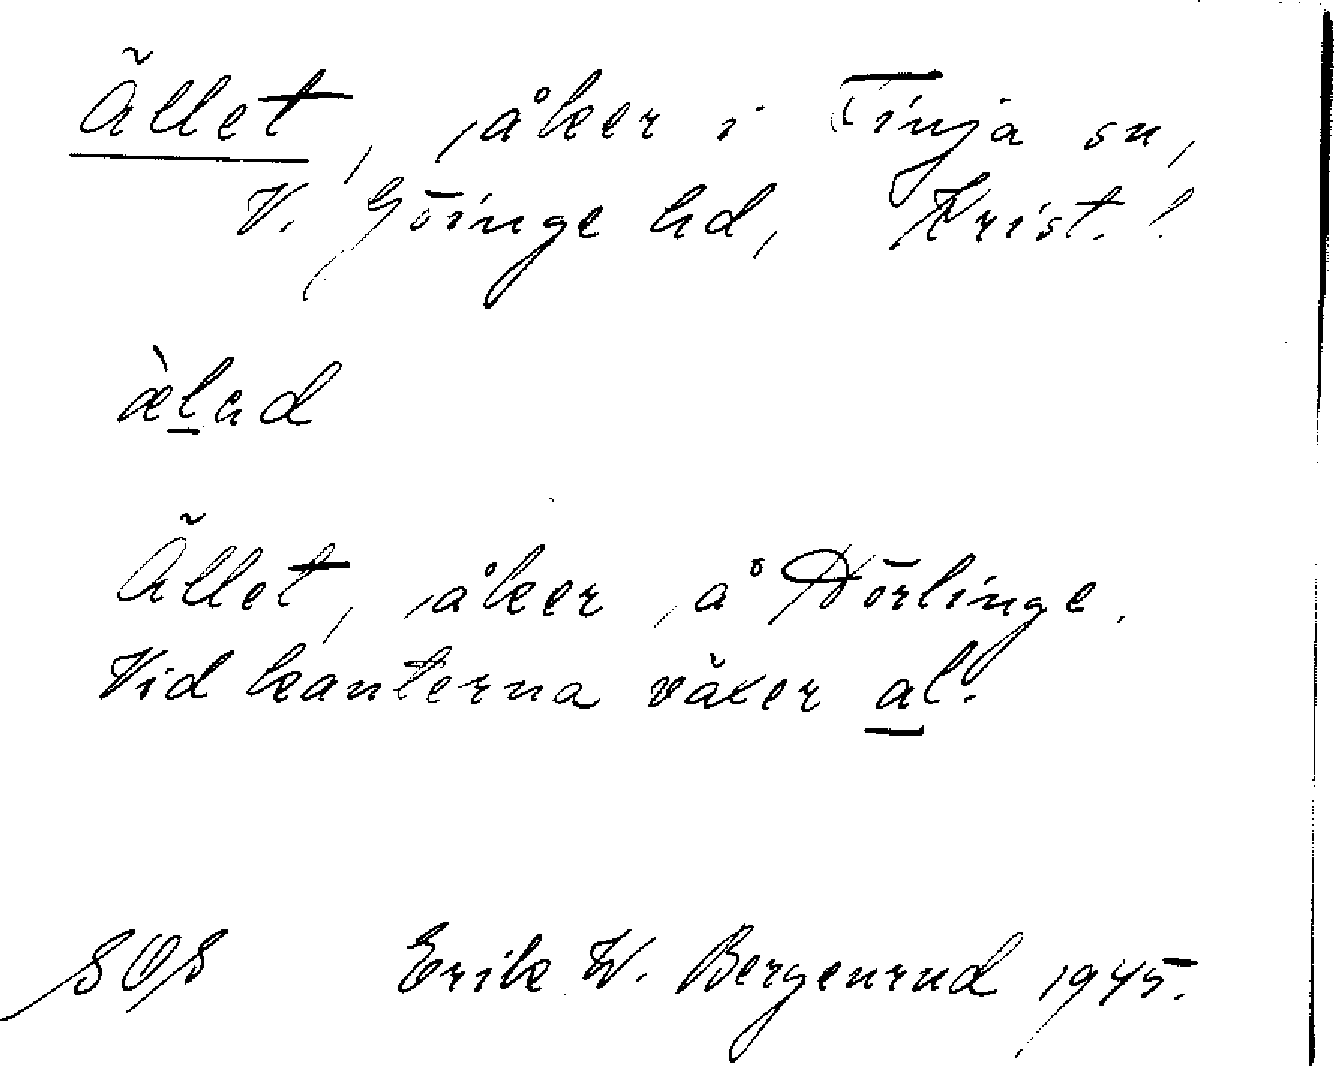 Ället, åker i Finja sn,
V. Göinge hd, Krist. l
æ̀lad
Ället, åker å Hörlinge.
Vid kanterna växer al.
SOS Erik W. Bergenrud 1945.